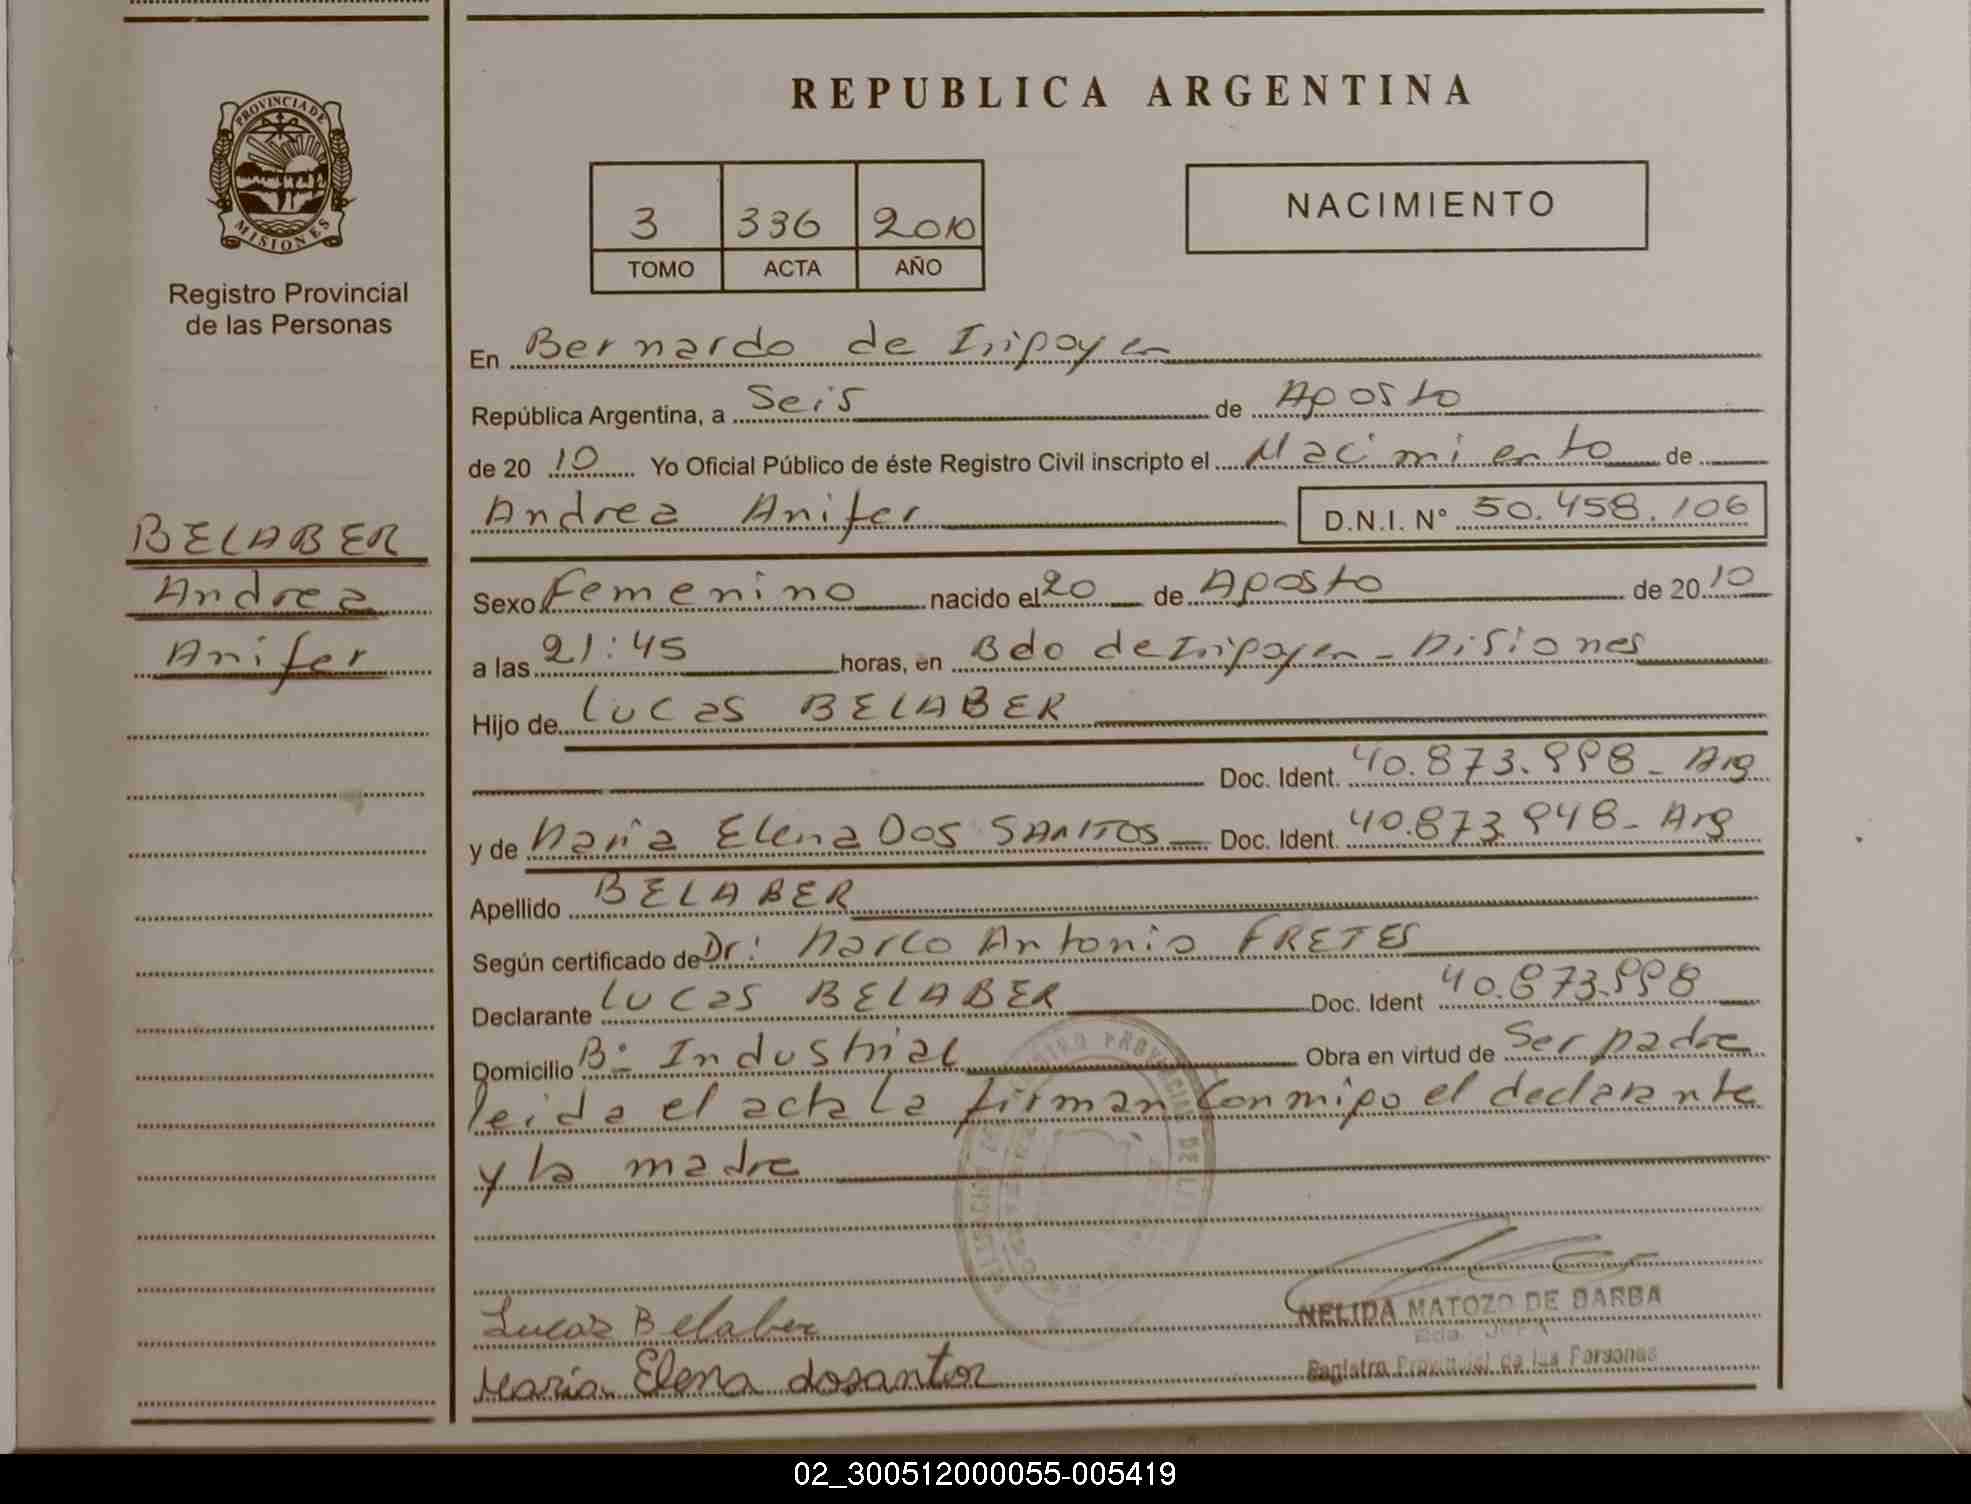 PROVINCIA DE
MISIONES
Registro Provincial
de las Personas
BELABER
Andrea
Anifer
REPUBLICA ARGENTINA
3 336 2010
TOMO ACTA AÑO
NACIMIENTO
En Bernardo de Irigoyen
República Argentina, a Seis de Agosto
de 20 10 Yo Oficial Público de éste Registro Civil inscripto el Nacimiento de
Andrea Anifer D.N.I. N° 50.458.106
Sexo Femenino nacido el 20 de Agosto de 20 10
a las 21:45 horas, en Bdo de Irigoyen - Misiones
Hijo de Lucas BELABER
Doc. Ident. 40.873.998 - Arg
y de Maria Elena DOS SANTOS Doc. Ident. 40.873.948 - Arg
Apellido BELABER
Según certificado de Dr: Marco Antonio FRETES
Declarante Lucas BELABER Doc. Ident 40.873.998
Domicilio B° Industrial Obra en virtud de Ser padre
leida el acta la firman conmigo el declarante
y la madre
Lucas Belaber
NELIDA MATOZO DE BARBA
Maria Elena dosantos
Registro Provincial de las Personas
02_300512000055-005419